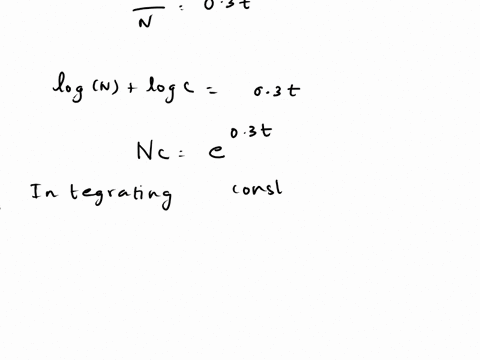 N = 0.3t
log(N) + log c = 0.3t
Nc = e^0.3t
Integrating const